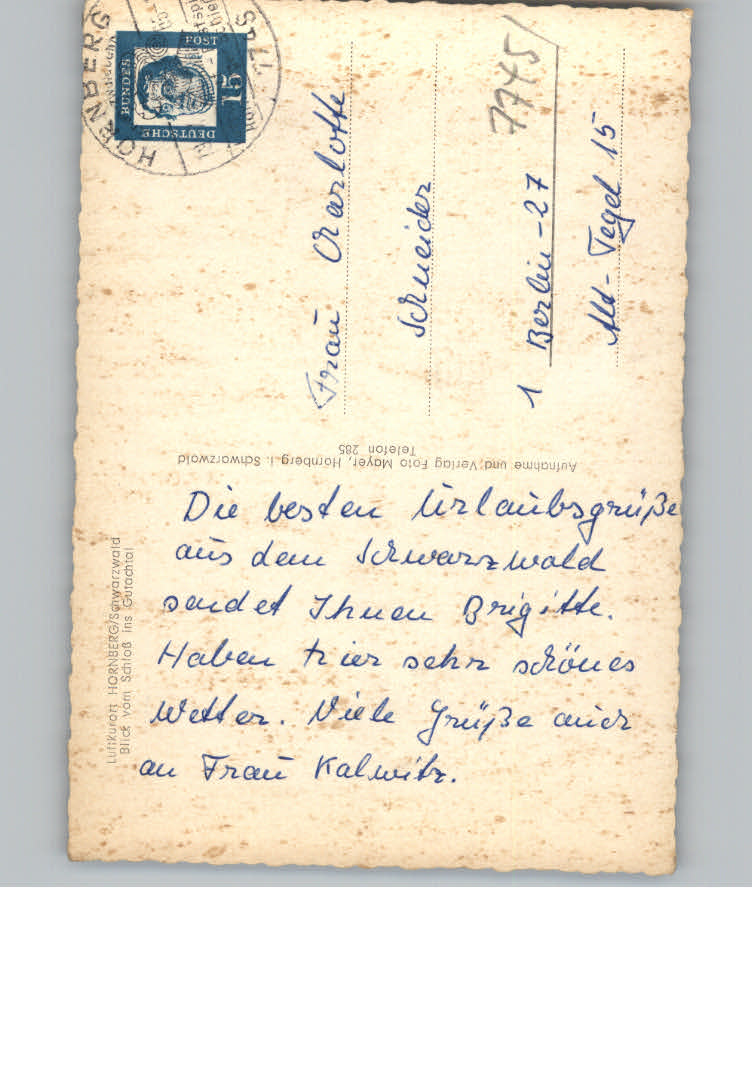 Die besten Urlaubsgrüße
aus dem Schwarzwald
sendet Ihnen Brigitte.
Haben hier sehr schönes
Wetter. Viele Grüße auch
an Frau Kalwitz.
Frau Charlotte
Schneider
1 Berlin-27
Alt-Tegel 15
7745/
Luftkurort HORNBERG/Schwarzwald
Blick vom Schloß ins Gutachtal
Aufnahme und Verlag Foto Mayer, Hornberg i. Schwarzwald
Telefon 285
DEUTSCHE BUNDESPOST
15
HORNBERG